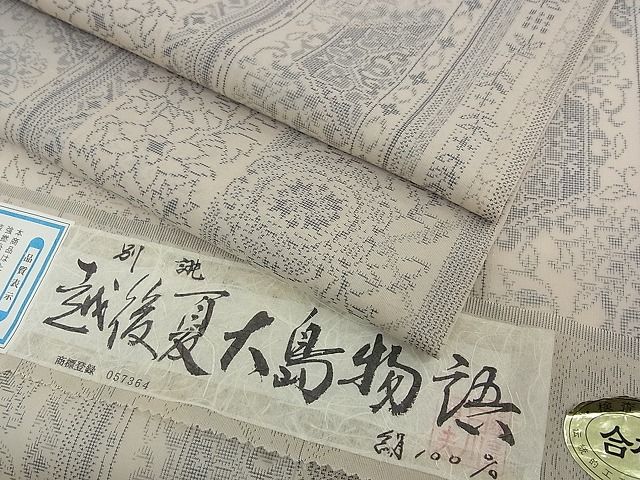 別誂
越後夏大島物語
商標登録 057364
絹100%
品質表示
本商品は
合